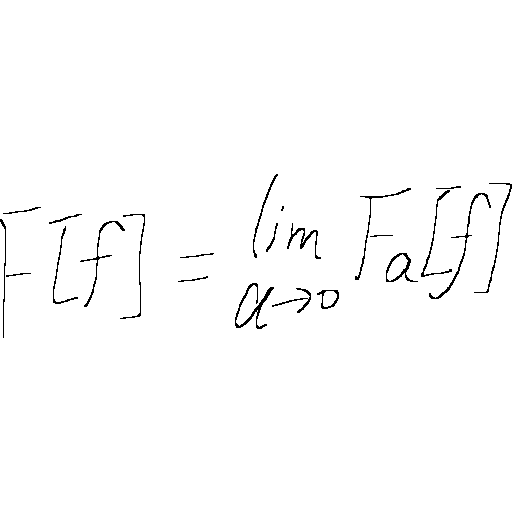 F[f] = \lim_{a \to 0} F_a[f]